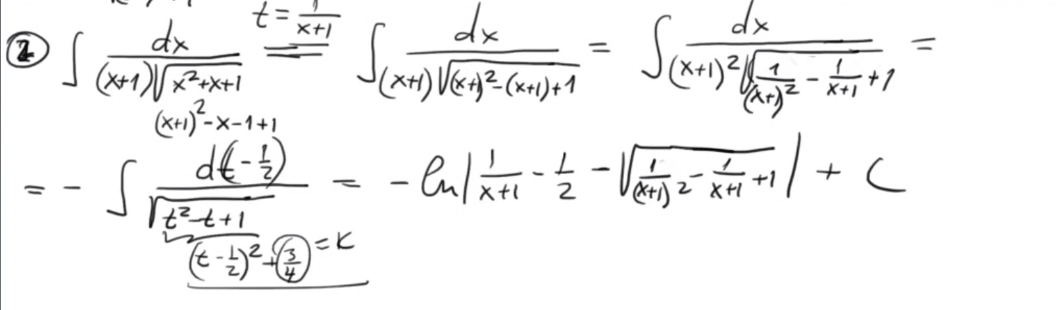 ② ∫ dx/((x+1)√(x²+x+1)) t = 1/(x+1) ∫ dx/((x+1)√((x+1)²-(x+1)+1)) = ∫ dx/((x+1)²√(1/(x+1)² - 1/(x+1) + 1)) =
(x+1)²-x-1+1
= - ∫ d(t-1/2)/√(t²-t+1) = - ln|1/(x+1) - 1/2 - √(1/(x+1)² - 1/(x+1) + 1)| + C
(t-1/2)²+3/4 = K